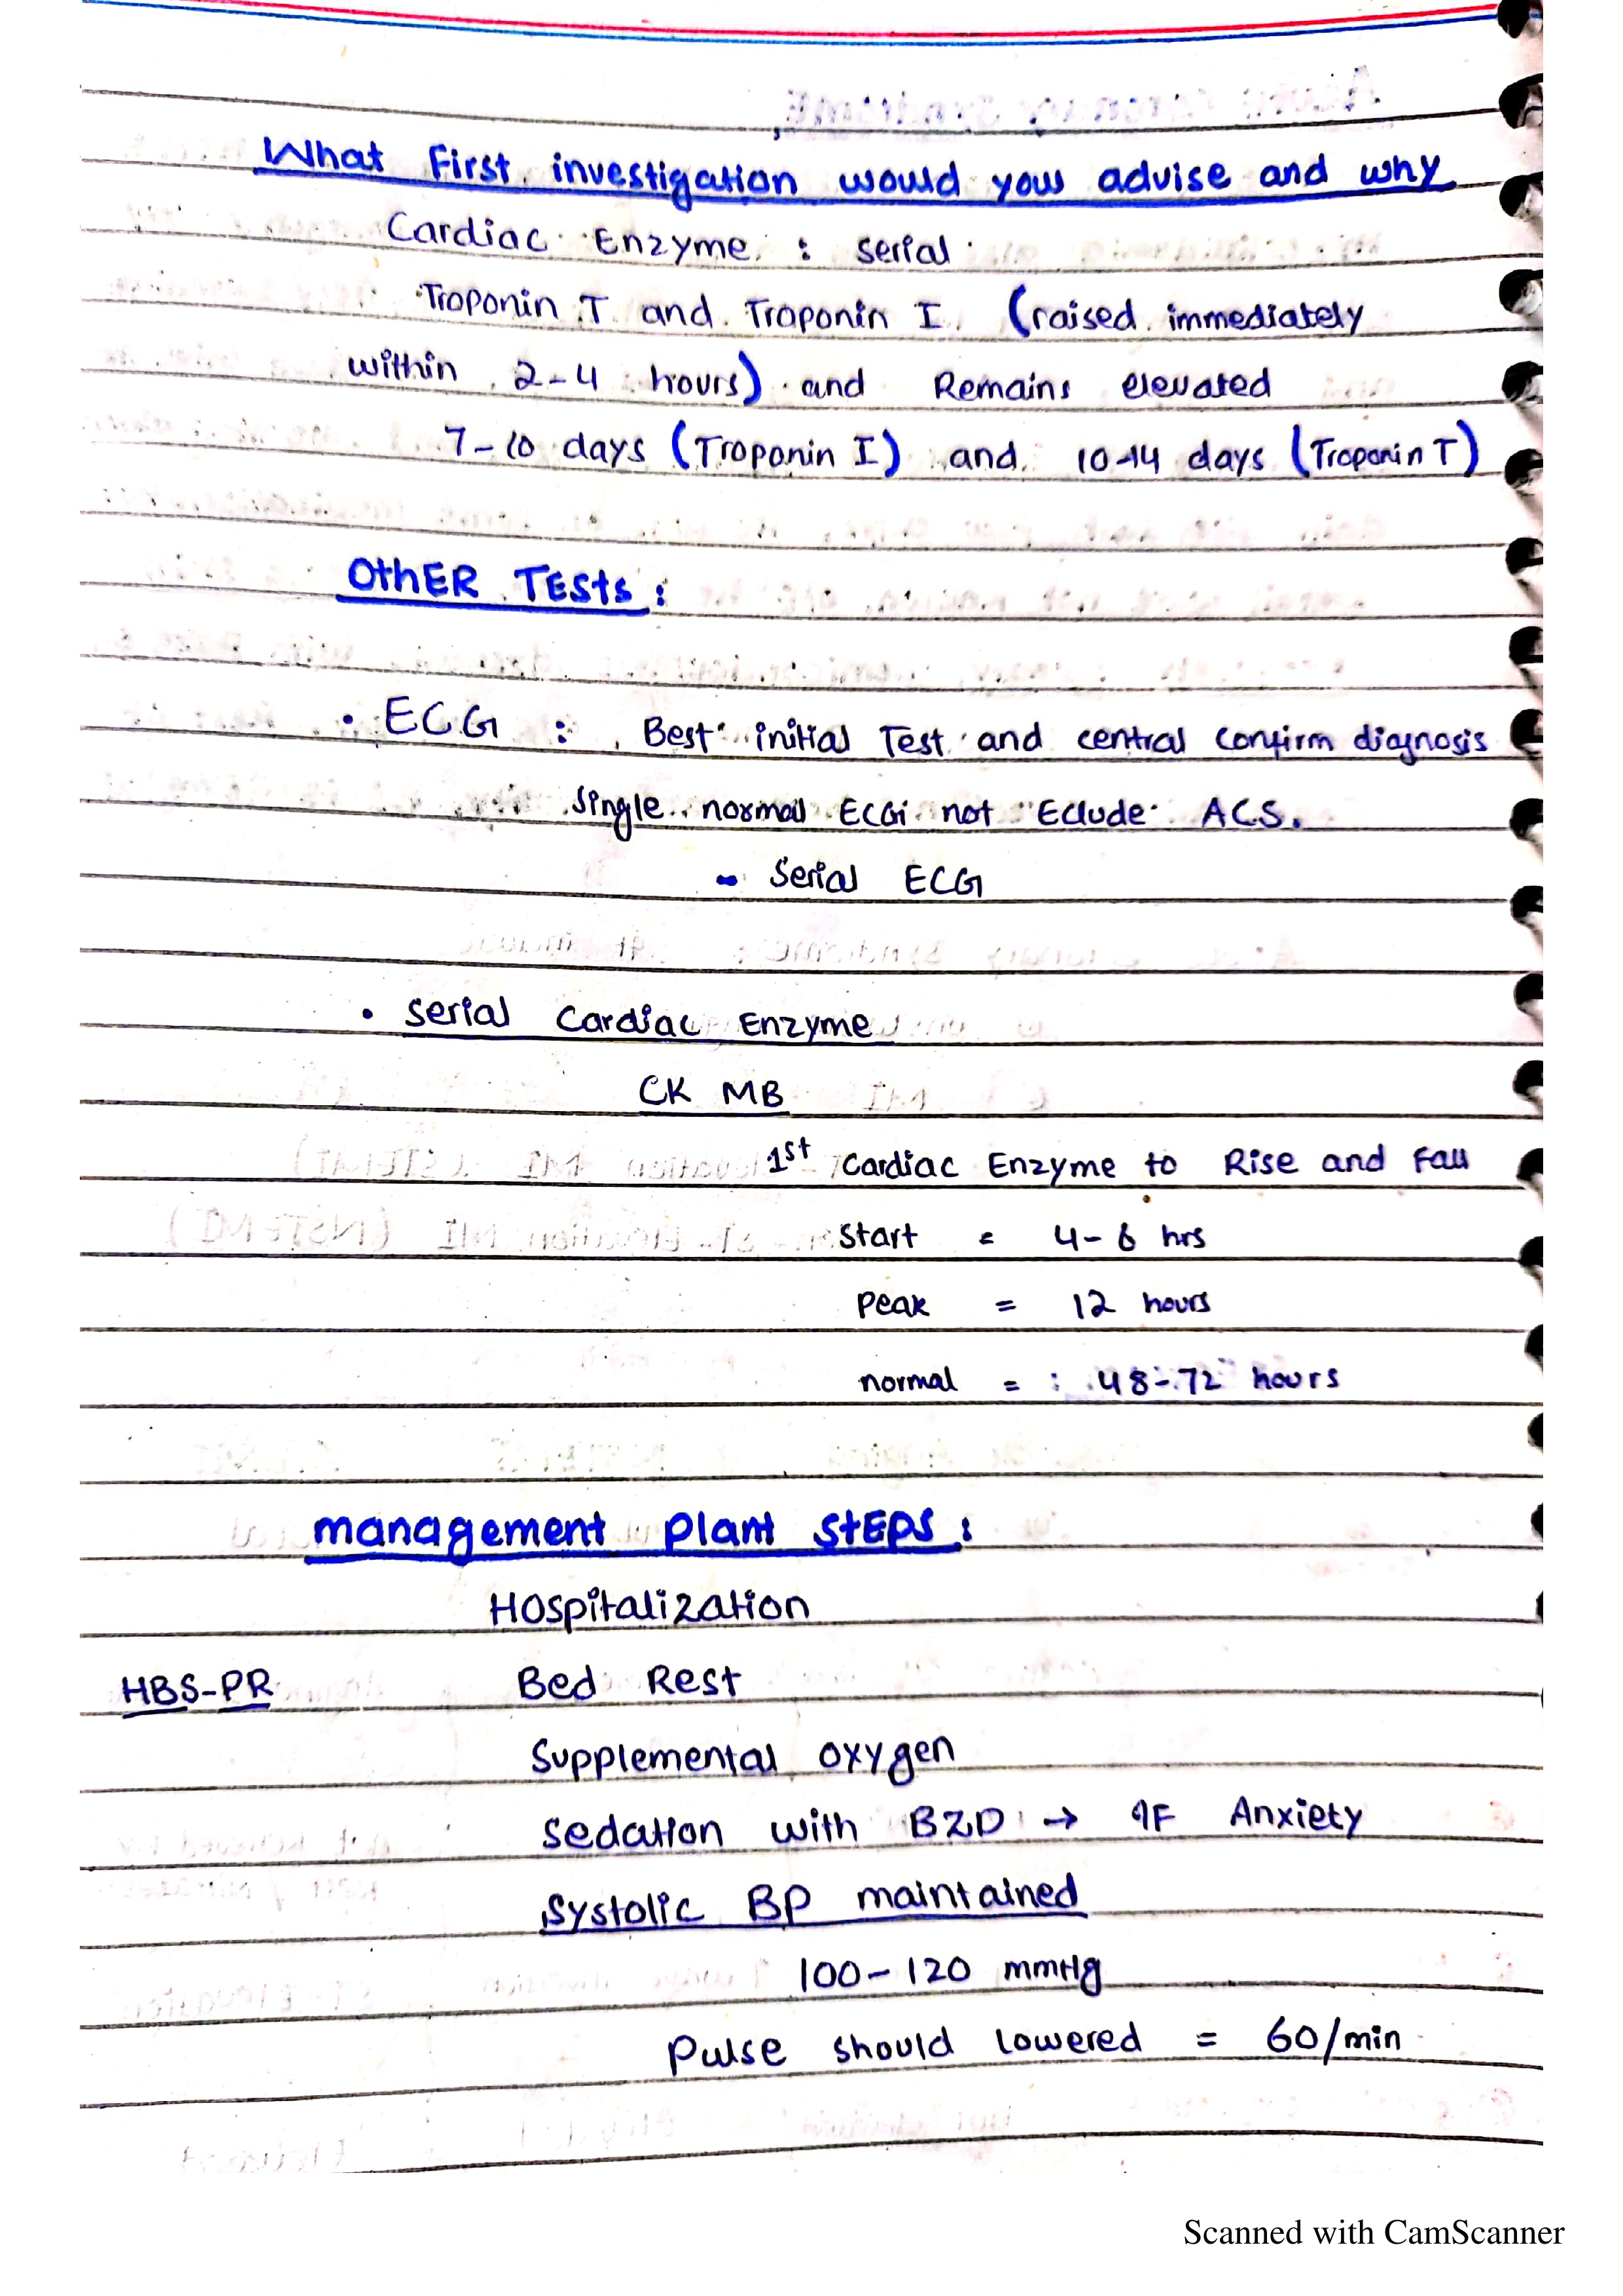 What First investigation would you advise and why
Cardiac Enzyme : serial
Troponin T and Troponin I (raised immediately
within 2-4 hours) and Remains elevated
7-10 days (Troponin I) and 10-14 days (Troponin T)
OthER TESts :
• ECG : Best initial Test and central confirm diagnosis
single normal ECG not Eclude ACS.
- Serial ECG
• Serial Cardiac Enzyme
CK MB
1st Cardiac Enzyme to Rise and Fall
Start = 4-6 hrs
Peak = 12 hours
normal = : 48-72 hours
management plant StEPS :
Hospitalization
HBS-PR Bed Rest
Supplemental oxygen
Sedation with BZD → IF Anxiety
Systolic BP maintained
100-120 mmHg
Pulse should lowered = 60/min
Scanned with CamScanner